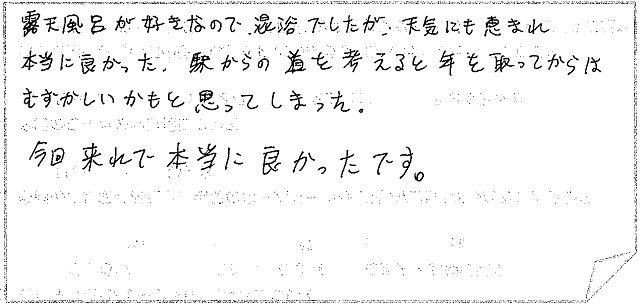 露天風呂が好きなので、混浴でしたが、天気にも恵まれ
本当に良かった。駅からの道を考えると年を取ってからは
むずかしいかもと思ってしまった。
今回来れて本当に良かったです。